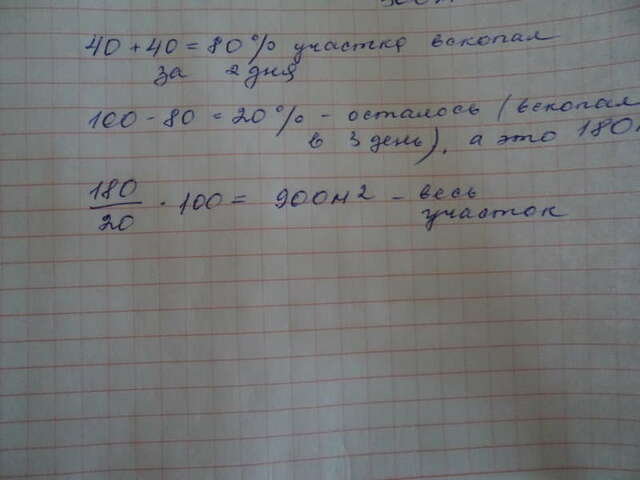 40 + 40 = 80% участка вскопал
за 2 дня
100 - 80 = 20% - осталось (вскопал
в 3 день), а это 180
180
20
· 100 = 900м2 - весь
участок